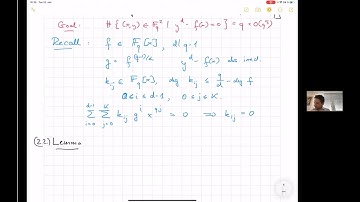 Goal: # { (x,y) ∈ F_q² | y^d - f(x) = 0 } = q + O(q^½)
Recall: f ∈ F_q[x], d | q-1
g = f^{(q-1)/d} y^d - f(x) abs irred.
k_{ij} ∈ F_q[x], deg k_{ij} ≤ q/d - deg f
0 ≤ i ≤ d-1, 0 ≤ j ≤ K.
∑_{i=0}^{d-1} ∑_{j=0}^{K} k_{ij} g^i x^{qj} = 0 ⟹ k_{ij} = 0
(2.2) Lemma